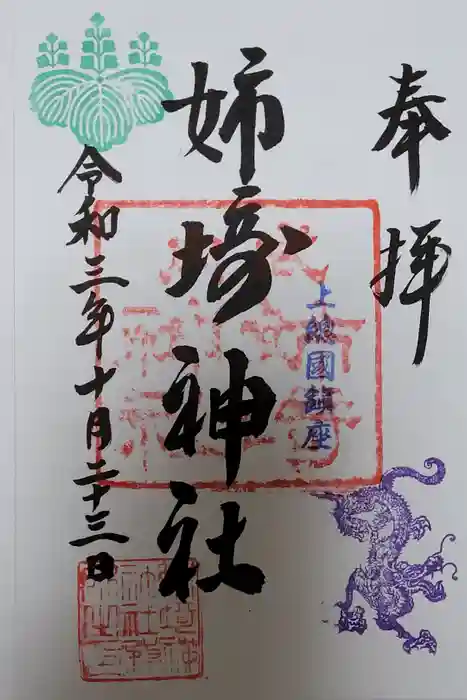 奉拝
上總國鎮座
姉埼神社
令和三年十月二十三日